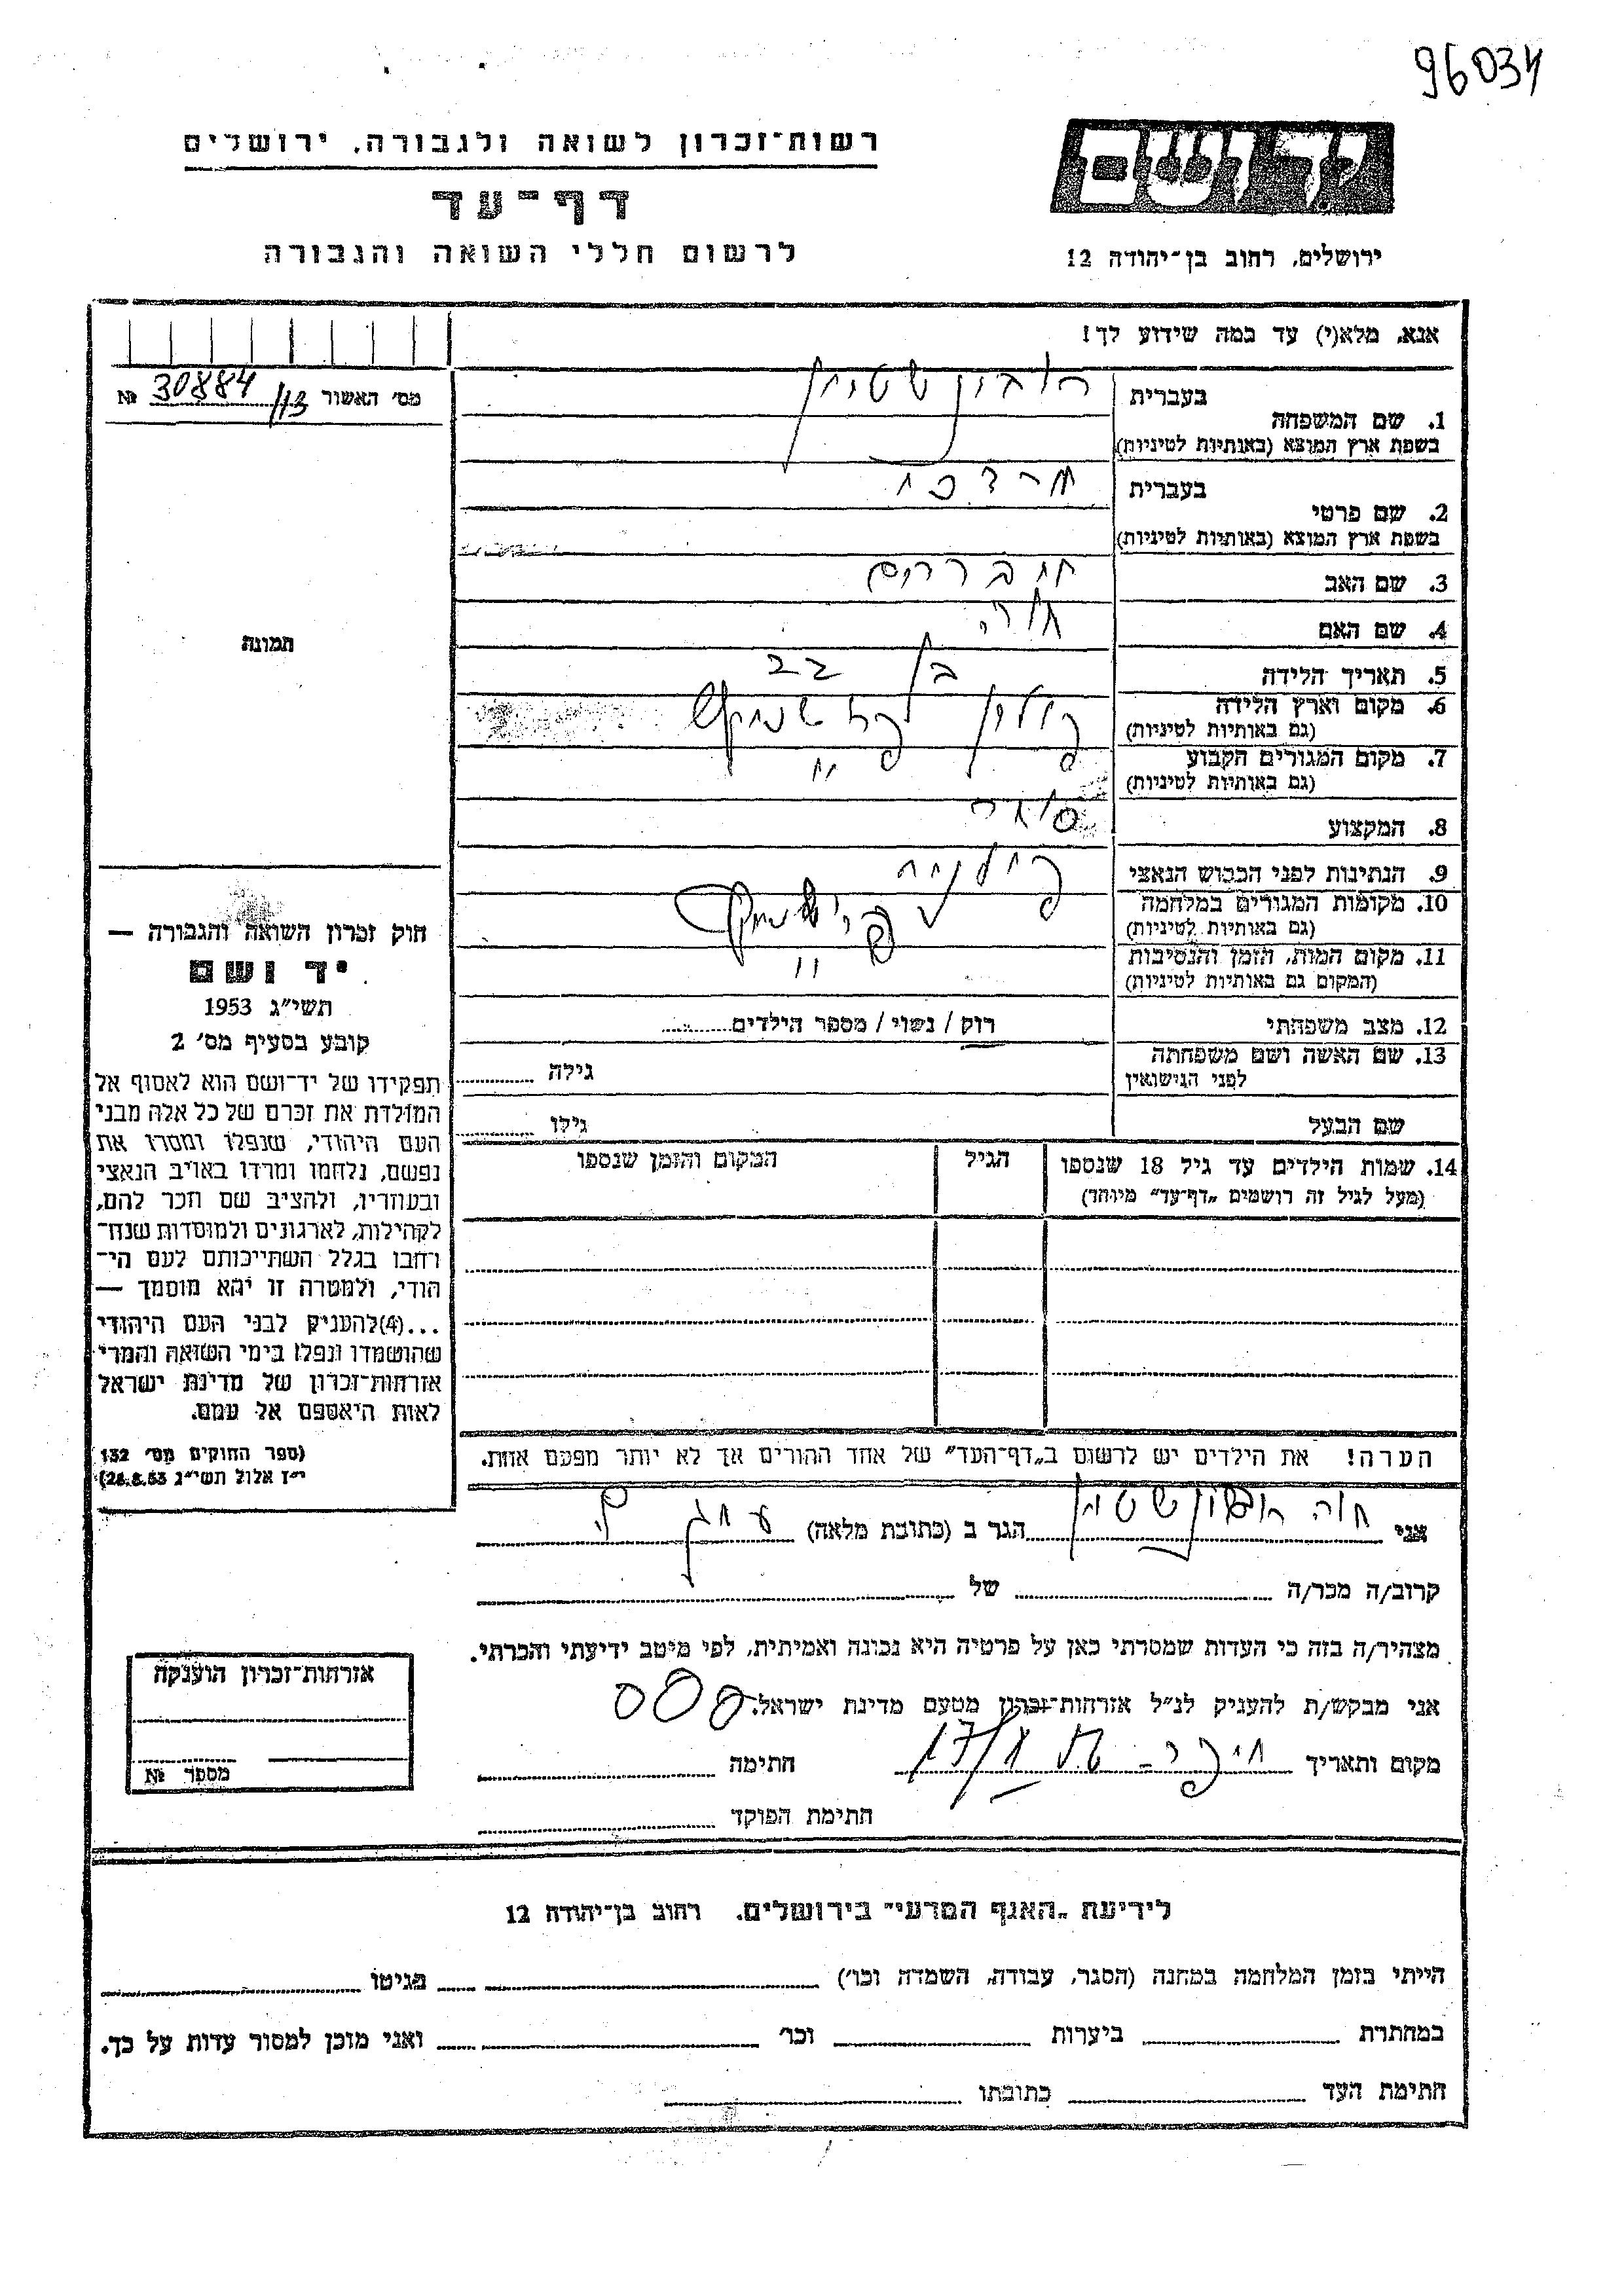 96034
רשות־זכרון לשואה ולגבורה, ירושלים
יד ושם
דף־עד
לרשום חללי השואה והגבורה
ירושלים, רחוב בן־יהודה 12
אנא, מלא(י) עד כמה שידוע לך!
מס׳ האשור 30884/113 №
1. שם המשפחה בעברית רובינשטיין
בשפת ארץ המוצא (באותיות לטיניות)
2. שם פרטי בעברית מרדכי
בשפת ארץ המוצא (באותיות לטיניות)
3. שם האב אברהם
4. שם האם
5. תאריך הלידה בן 22
6. מקום וארץ הלידה פולין
(גם באותיות לטיניות)
7. מקום המגורים הקבוע "
(גם באותיות לטיניות)
8. המקצוע
9. הנתינות לפני הכבוש הנאצי פולניה
10. מקומות המגורים במלחמה
(גם באותיות לטיניות)
11. מקום המות, הזמן והנסיבות "
(המקום גם באותיות לטיניות)
12. מצב משפחתי רוק / נשוי / מספר הילדים
13. שם האשה ושם משפחתה
לפני הנישואין גילה
שם הבעל גילו
14. שמות הילדים עד גיל 18 שנספו הגיל המקום והזמן שנספו
(מעל לגיל זה רושמים „דף־עד" מיוחד)
הערה! את הילדים יש לרשום ב„דף־העד" של אחד ההורים אך לא יותר מפעם אחת.
תמונה
חוק זכרון השואה והגבורה —
יד ושם
תשי״ג 1953
קובע בסעיף מס׳ 2
תפקידו של יד־ושם הוא לאסוף אל
המולדת את זכרם של כל אלה מבני
העם היהודי, שנפלו ומסרו את
נפשם, נלחמו ומרדו באויב הנאצי
ובעוזריו, ולהציב שם וזכר להם,
לקהילות, לארגונים ולמוסדות שנח־
רחבו בגלל השתייכותם לעם הי־
הודי, ולמטרה זו יהא מוסמך —
...(4)להעניק לבני העם היהודי
שהושמדו ונפלו בימי השואה והמרי
אזרחות־זכרון של מדינת ישראל
לאות היאספם אל עמם.
(ספר החוקים מס׳ 132
י״ז אלול תשי״ג 28.8.53)
אני חוה רובינשטיין הגר ב (כתובת מלאה)
קרוב/ה מכר/ה של
מצהיר/ה בזה כי העדות שמסרתי כאן על פרטיה היא נכונה ואמיתית, לפי מיטב ידיעתי והכרתי.
אני מבקש/ת להעניק לנ״ל אזרחות־זכרון מטעם מדינת ישראל.
מקום ותאריך חיפה חתימה
חתימת הפוקד
אזרחות־זכרון הוענקה
מספר №
לידיעת „האגף המדעי" בירושלים, רחוב בן־יהודה 12
הייתי בזמן המלחמה במחנה (הסגר, עבודה, השמדה וכו׳) בגיטו
במחתרת ביערות וכו׳ ואני מוכן למסור עדות על כך.
חתימת העד כתובתו